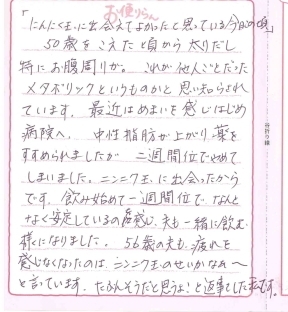 お便りらん
「にんにく玉に出会えてよかったと思っている今日この頃」
50歳をこえた頃から太りだし
特にお腹周りが。これが他人ごとだった
メタボリックというものかと思い知らされ
ています。最近はめまいを感じはじめ
病院へ。中性脂肪が上がり、薬を
すすめられましたが二週間位でやめて
しまいました。ニンニク玉に出会ったから
です。飲み始めて一週間位で、なんと
なく安定しているのを感じ、夫も一緒に飲む
様になりました。56歳の夫も疲れを
感じなくなったのは、ニンニク玉のせいかなぁ〜
と言っています。たぶんそうだと思うよ!と返事をした私です。
谷折り線